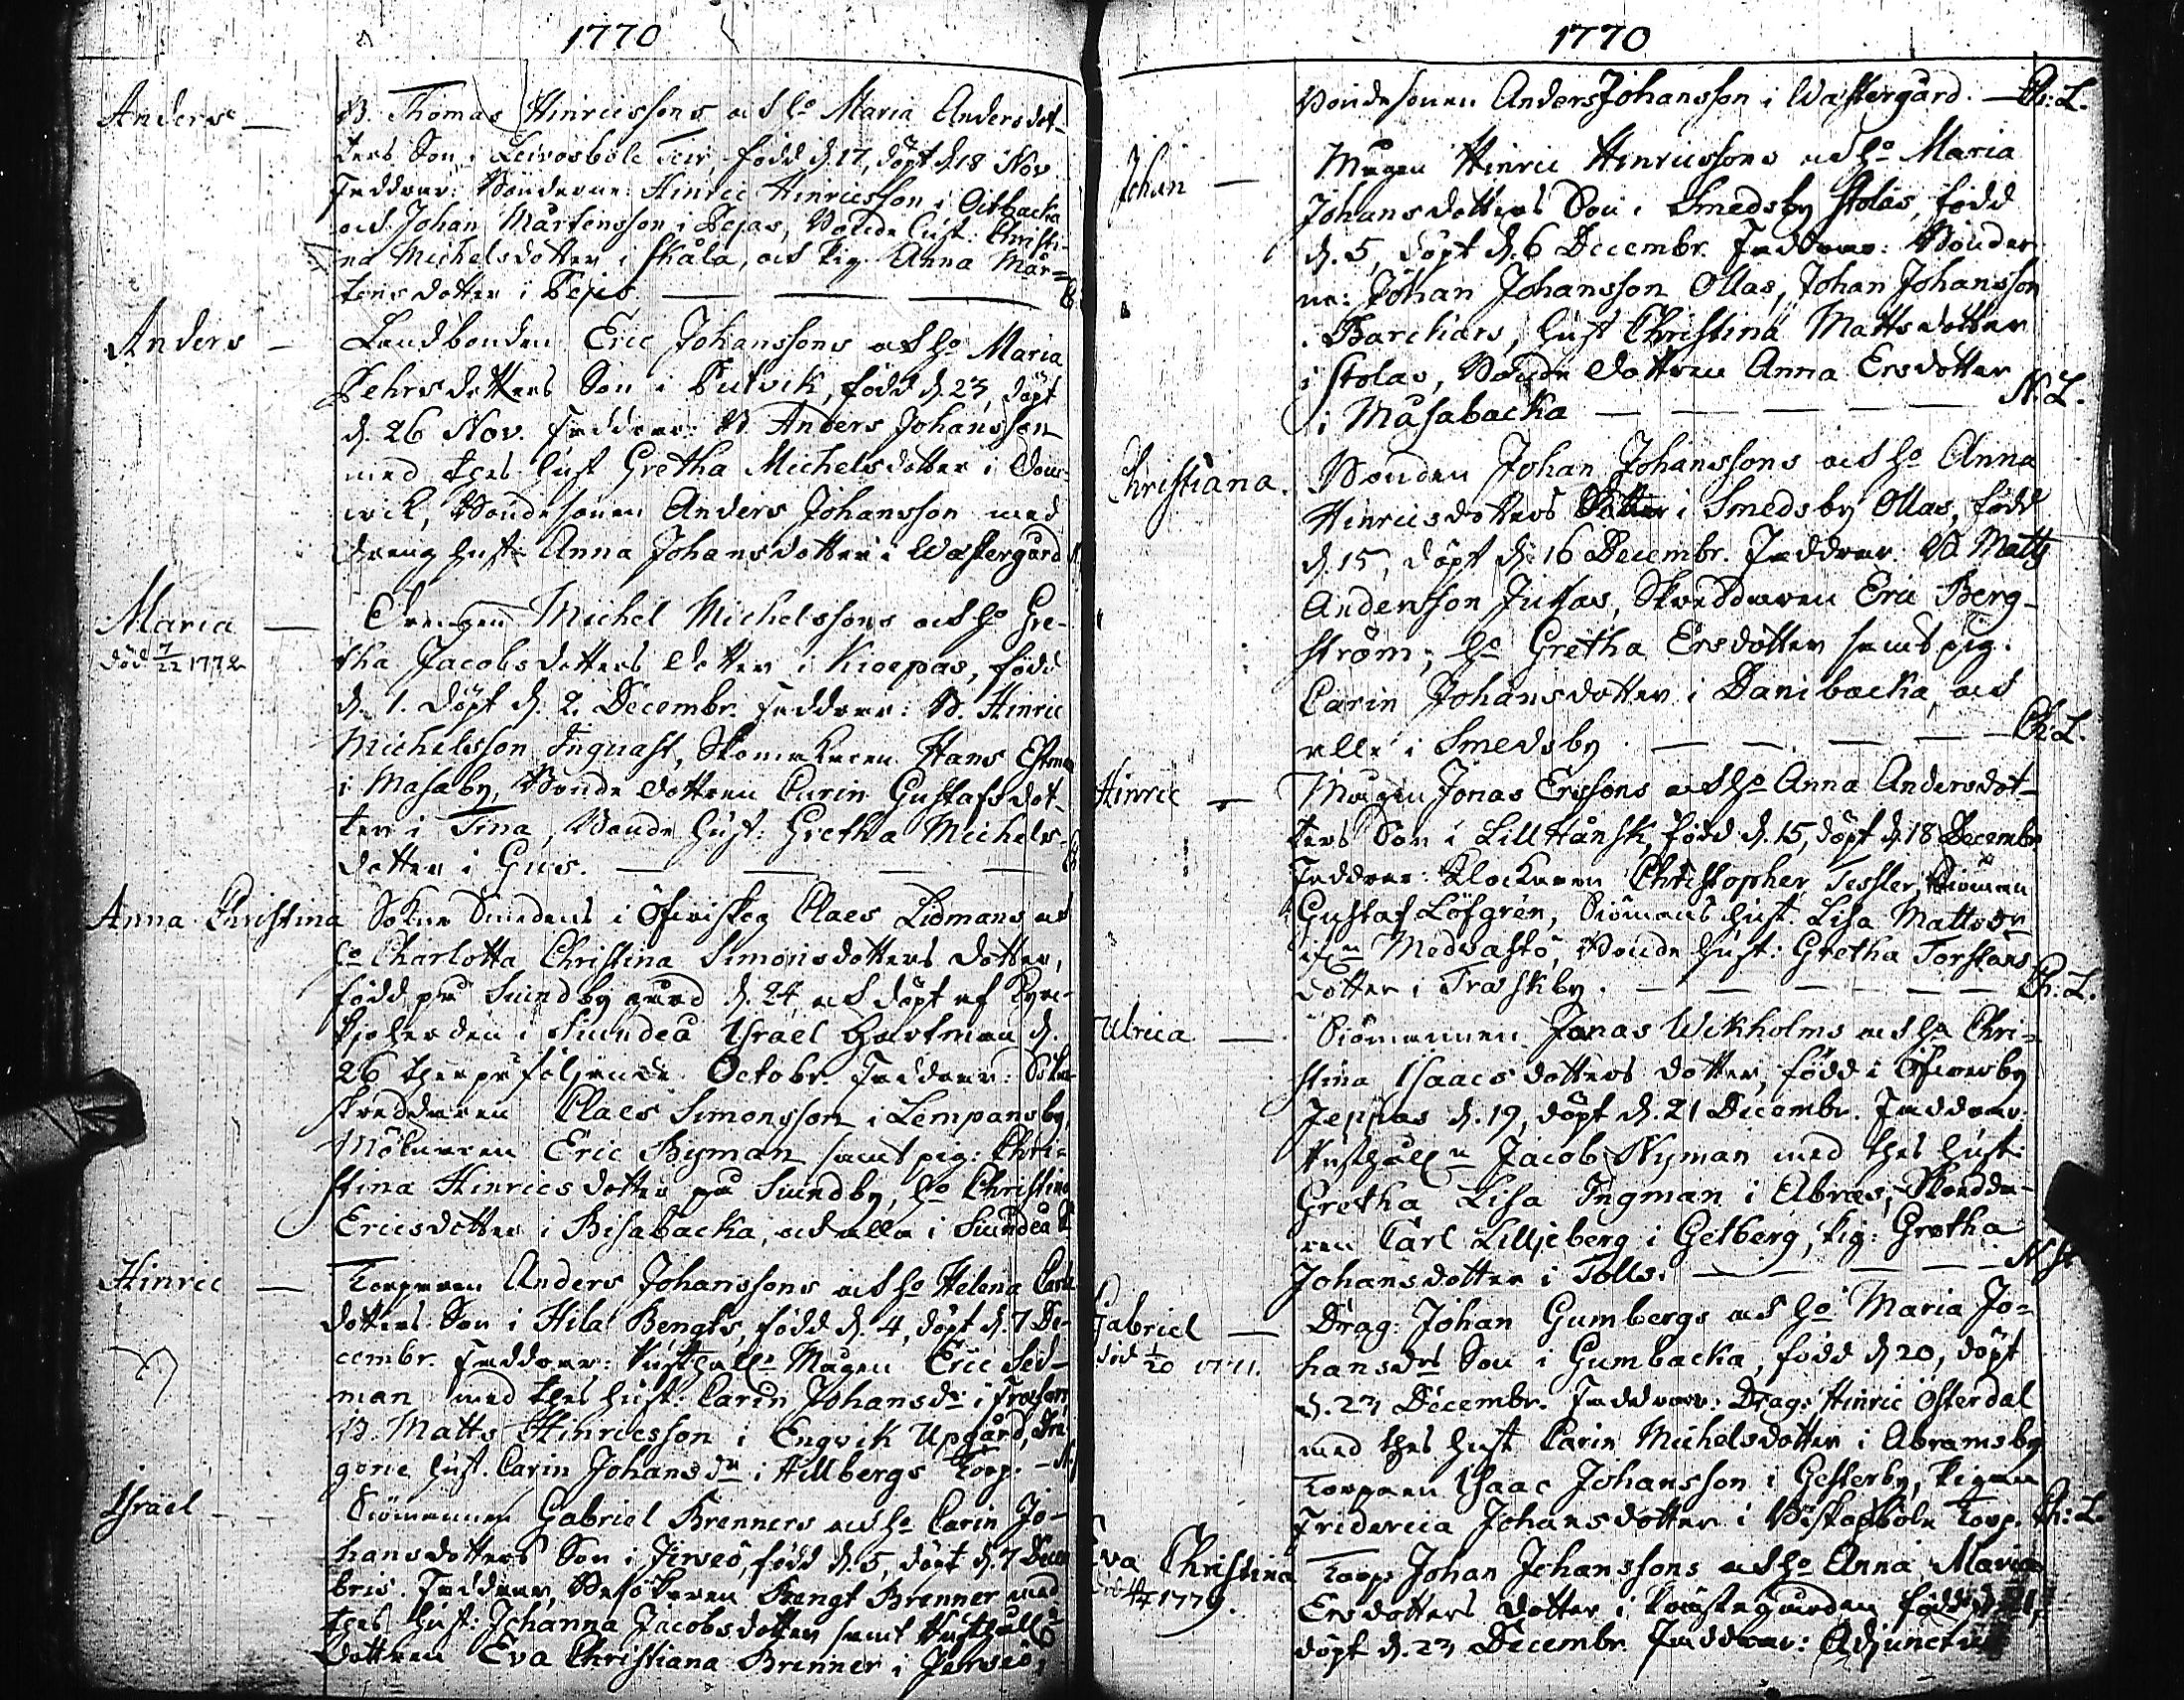 1770
Anders
B. Thomas Hinricssons och ho Maria Andersdot-
ters Son i Leivosböle Teir, född d. 17, döpt d. 18 Nov.
Faddrar: Bönderne Hinric Hinricsson i Oitbacka
och Johan Mårtensson i Pejas, Bonde hust: Christi-
na Michelsdotter i Skåla, och Pig. Anna Mår=
tensdotter i Pejas.
Anders
Landbonden Eric Johanssons och ho Maria
Pehrsdotters Son i Putvik, född d. 23, döpt
d. 26 Nov. Faddrar: B. Anders Johansson
med thes hust Gretha Michelsdotter i Dom-
wik, Bondesonen Anders Johansson med
dreng hust: Anna Johansdotter i Westergård
Maria
död 7/22 1772
Drengen Michel Michelssons och ho Gre-
tha Jacobsdotters dotter i Kioepas, född
d. 1. döpt d. 2. Decembr. Faddrar: B. Hinric
Michelsson Ingvast, Skomakaren Hans
i Masaby, Bonde dottren Carin Gustafsdot-
ter i Tina, Bonde hust: Gretha Michels-
dotter i Gus.
Anna Christina
Sokne Smedens i Öfwiskog Claes Lidmans och
ho Charlotta Christina Simonsdotters dotter,
född på Sundby gård d. 24 och döpt af Kyrc-
kjoherden i Siundeå Israel Hartman d.
26 therpå följande Octobr. Faddrar: Sokne
skreddaren Claes Simonsson i Lempansby,
Mölnaren Eric Byman samt pig: Chri=
stina Hinricsdotter på Sundby, ho Christina
Ericsdotter i Bisabacka, och alla i Siundeå
Hinric
Torparen Anders Johanssons och ho Helena Carls
dotters Son i Hila Bengts, född d. 4, döpt d. 7 De-
cembr. Faddrar: Rusthåll. Mågen Eric Sed-
man med thes hust: Carin Johansdr i
B. Matts Hinricsson i Engvik Upgård, Dra
gone hust. Carin Johansdr i Hillbergs Torp.
Israel
Siömannen Gabriel Brenners och ho Carin Jo-
hansdotters Son i Jerseö, född d. 5, döpt d. 7 Decem
bris. Faddrar, Besökaren Bengt Brenner med
thes hust: Johanna Jacobsdotter samt Rusthåll
dottren Eva Christiana Brenner i Jerseö,
1770
Bondesonen Anders Johansson i Westergård. Ch: L.
Johan
Mågen Hinric Hinricssons och ho Maria
Johansdotters Son i Smedsby Stolas, född
d. 5, döpt d. 6 Decembr. Faddrar: Bönder
ne: Johan Johansson Ollas, Johan Johansson
Barckars, hust Christina Mattsdotter
i Stolas, Bonde dottren Anna Ersdotter
i Måsabacka N. L.
Christiana.
Bonden Johan Johanssons och ho Anna
Hinricsdotters Dotter i Smedsby Ollas, född
d. 15, döpt d. 16 Decembr. Faddrar: B. Matts
Andersson Jutas, Skreddaren Eric Berg-
ström, ho Gretha Ersdotter samt pig.
Carin Johansdotter i Danibacka, och
alla i Smedsby. Ch: L.
Hinric
Mågen Jonas Erssons och ho Anna Andersdot-
ters Son i Lill Hånsk, född d. 15, döpt d. 18 Decembr
Faddrar: Klockaren Christopher Tessler, Siöman
Gustaf Löfgrén, Siömans hust Lisa Mattsdr
Medvastö, Bonde hust: Gretha Torstens
dotter i Träskby. Ch: L.
Ulrica
Siömannen Jonas Wikholms och ho Chri=
stina Isaacsdotters dotter, född i Öfwerby
Jeppas d. 19, döpt d. 21 Decembr. Faddrar
Rusthåll. Jacob Nyman med thes hust:
Gretha Lisa Ingman i Åbräs, Skredda-
ren Carl Lilljeberg i Getberg, Pig: Gretha
Johansdotter i Tolls.
Gabriel
död 1/20 1771.
Drag: Johan Gumbergs och ho Maria Jo=
hansdrs Son i Gumbacka, född d. 20, döpt
d. 23 Decembr. Faddrar: Drag: Hinric Österdal
med thes hust Carin Michelsdotter i Abramsby
Torparen Isaac Johansson i Gesterby, Pigan
Fridericia Johansdotter i Biskopsböle Torp. Ch: L.
Eva Christina
1779.
Torp: Johan Johanssons och ho Anna Maria
Ersdotters dotter i Prästegården född d. 21,
döpt d. 23 Decembr. Faddrar: Adjunct